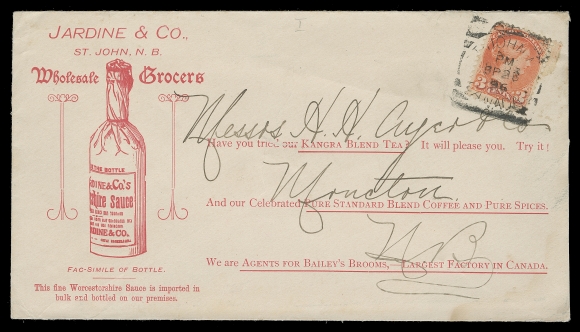 JARDINE & CO.,
ST. JOHN, N. B.
Wholesale Grocers
BOTTLE
DINE & CO'S
shire Sauce
JARDINE & CO.
FAC-SIMILE OF BOTTLE.
This fine Worcestorshire Sauce is imported in
bulk and bottled on our premises.
PM
Messrs H. H.
Have you tried our KANGRA BLEND TEA? It will please you. Try it!
Moncton
And our Celebrated PURE STANDARD BLEND COFFEE AND PURE SPICES.
NB
We are AGENTS FOR BAILEY'S BROOMS,—LARGEST FACTORY IN CANADA.